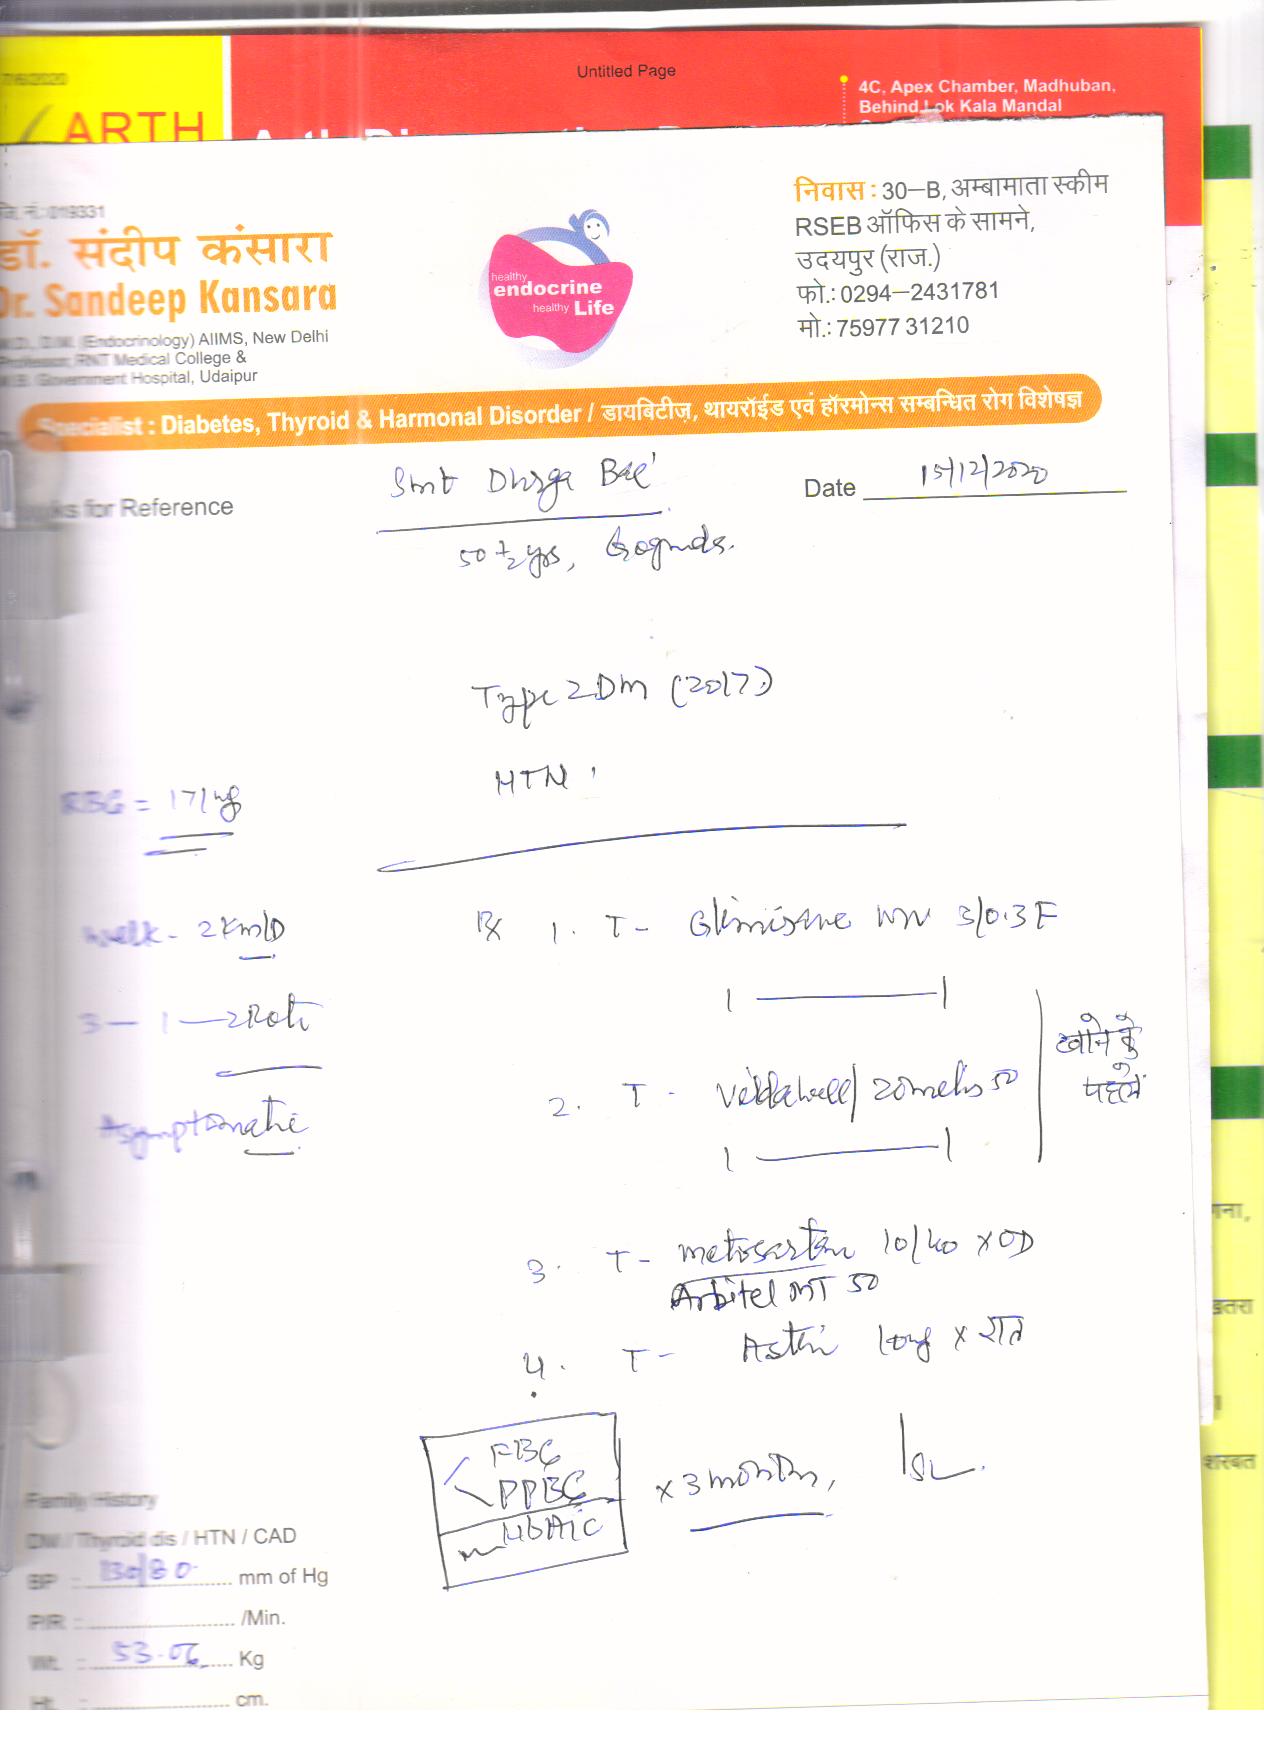 Untitled Page
7/6/2020
ARTH
4C, Apex Chamber, Madhuban,
Behind Lok Kala Mandal
निवास : 30–B, अम्बामाता स्कीम
RSEB ऑफिस के सामने,
उदयपुर (राज.)
फो.: 0294–2431781
मो.: 75977 31210
नं.: 019331
डॉ. संदीप कंसारा
Dr. Sandeep Kansara
(Endocrinology) AIIMS, New Delhi
Professor, RNT Medical College &
Government Hospital, Udaipur
healthy
endocrine
healthy Life
Specialist : Diabetes, Thyroid & Harmonal Disorder / डायबिटीज़, थायरोईड एवं हॉरमोन्स सम्बन्धित रोग विशेषज्ञ
for Reference
Smt Durga Bai
Date 15/12/2020
50 yrs,
Type 2 DM (2017)
HTN
RBG = 171 mg
Walk - 2 km/D
Rx 1. T- 3/0.3 F
1 — 1
3 — 1 — 2 Roti
खाने के
पहले
2. T - 50
1 — 1
Asymptomatic
3. T - metosartan 10/40 x OD
Arbitel MT 50
4. T - x रात
FBG
PPBG
HbA1c
x 3 months,
Family History
DM / Thyroid dis / HTN / CAD
BP : 130/80 mm of Hg
P/R : /Min.
Wt. : 53.06 Kg
Ht. : cm.
गना,
खतरा
शरबत